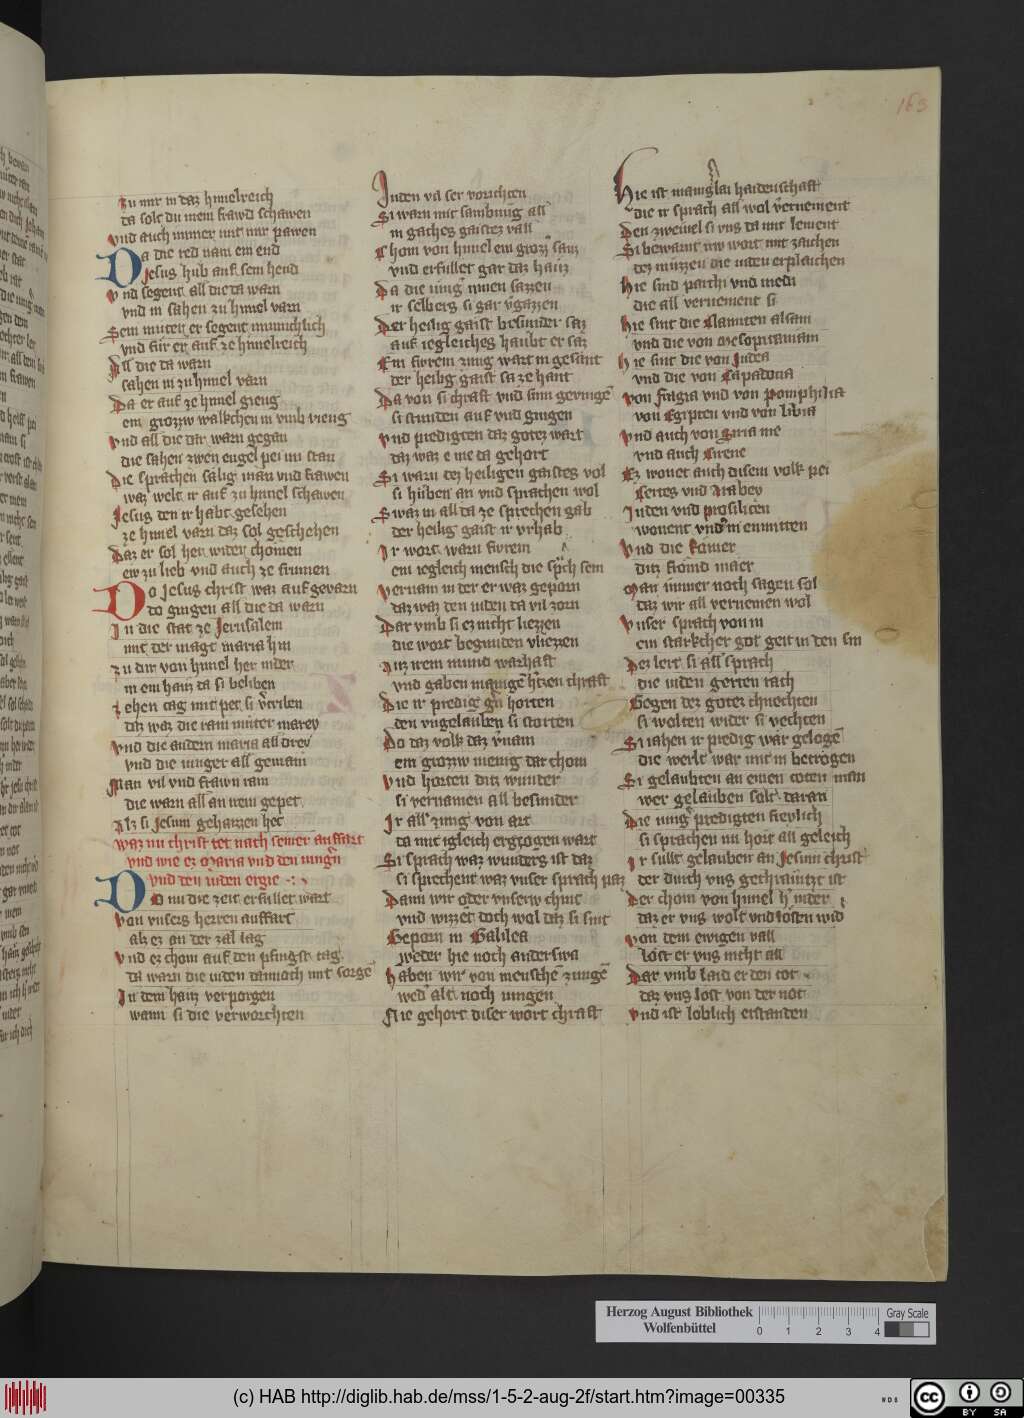 163
Zu mir in daz himelreich
da solt du mein frawd schawen
vnd auch immer mit mir pawen
Da die red nam ein end
Jesus hub auf sein hend
vnd segent all die da warn
vnd in sahen zu himel varn
Sein muter er segent minnichlich
vnd für er auf ze himelreich
All die da warn
sahen in zu himel varn
Da er auf ze himel gieng
ein grozzw walkchen in vmb vieng
vnd all die dar warn gegan
die sahen zwen engel pei im stan
Die sprachen sälig man vnd frawen
waz welt ir auf zu himel schawen
Jesus den ir habt gesehen
ze himel varn daz sol geschehen
Daz er sol her wider chomen
ew zu lieb vnd auch ze frumen
Do Jesus christ waz auf gevarn
do gingen all die da warn
In die stat ze Jerusalem
mit der magt maria hin
zu dir von himel her nider
in ein hauz da si beliben
zehen tag mit per si v̄triben
daz waz die rain muter marey
vnd die andern maria all drey
vnd die iunger all gemain
Man vil vnd frawn rain
die warn all an irem gepet
Alz si Jesum gehaizzen het
waz nu christ tet nach seiner auffart
vnd wie ez Maria vnd den iungn̄
vnd den iuden ergie
Do nu die zeit erfullet wart
von vnsers herren auffart
alz ez an der zal lag
vnd ez chom auf den pfingst tag
da warn die iuden dannoch mit sorgē
In dem hauz verporgen
wann si die verworchten
Juden vil ser vorichten
Si warn mit sambnug all
in gaches gaistez vall
Chom von himel ein groz̄ sauz
vnd erfullet gar daz hauz
Da die iunḡ innen sazzen
ir selbers si gar v̄gazzen
Der heilig gaist besunder saz
auf iegleiches haubt er saz
Ein fewrein zung wart in gesant
der heilig gaist sa ze hant
Da von si chraft vnd sinn gevingē
si stunden auf vnd gingen
vnd predigten daz gotez wart
daz waz e nie da gehort
Si warn dez heiligen gaistez vol
si hüben an vnd sprachen wol
Swaz in all da ze sprechen gab
der heilig gaist ir vrhab
Ir wort warn fivrein
ein iegleich mensch die sprch sein
vernam in der er waz geporn
daz waz den iuden ta vil zorn
Dar vmb si ez nicht liezzen
die wort begunden vliezzen
Auz irem mund warhaft
vnd gaben manigē h̄tzen chraft
Die ir predige gn̄ horten
den vngelauben si storten
Do daz volk daz v̄nam
ein grozzw menig dar chom
vnd horten ditz wunder
si vernamen all besunder
Ir all zung von art
da mit igleich ergzogen wart
Si sprach waz wunders ist daz
si sprechent waz vnser sprach paz
Dann wir oder vnserw chint
vnd wizzet doch wol daz si sint
Geporn in Galilea
weder hie noch anderswa
Haben wir von menschē zungē
wed̄ alt noch iungen
Nie gehort diser wort chraft
Hie ist maniḡlai haidenschaft
die ir sprach all wol v̄nement
Den zweivel si vns da mit lement
Si bewarnt irw wort mit zaichen
dez muzzen die iuden erplaichen
Hie sind parthi vnd medi
die all vernement si
Hie sint die Elamiten alsam
vnd die von Mesopotaniam
Hie sint die von Judea
vnd die von Capadocia
von Frigia vnd von Pomphilia
von Egipten vnd von libia
vnd auch von Siria me
vnd auch Cirene
Ez wonet auch disem volk pei
Cretes vnd Arabey
Juden vnd prosiliten
wonent vnd'm enmitten
vnd die Romer
ditz fromd maer
Man immer noch sagen sol
daz wir all vernemen wol
vnser sprach von in
ein starkcher got geit in den sin
Dez lert si all sprach
die iuden gerten rach
Gegen dez gotez chnechten
si wolten wider si vechten
Si iahen ir predig wär gelogē
die werlt wär mit in betrogen
Si gelaubten an einen toten man
wer gelauben solt daran
Die iunḡ predigten frevlich
si sprachen nu hort all geleich
Ir sullt gelauben an Jesum christ
der durch vns gechraiitzt ist
Der chom von himel h̄ nider
daz er vns wolt vnd losten wid
von dem ewigen vall
lost er vns nicht all
Dar vmb laid er den tot
daz vns lost von der not
vnd ist loblich erstanden
Herzog August Bibliothek
Wolfenbüttel
0 1 2 3 4
Gray Scale
(c) HAB http://diglib.hab.de/mss/1-5-2-aug-2f/start.htm?image=00335
WDB
CC BY SA